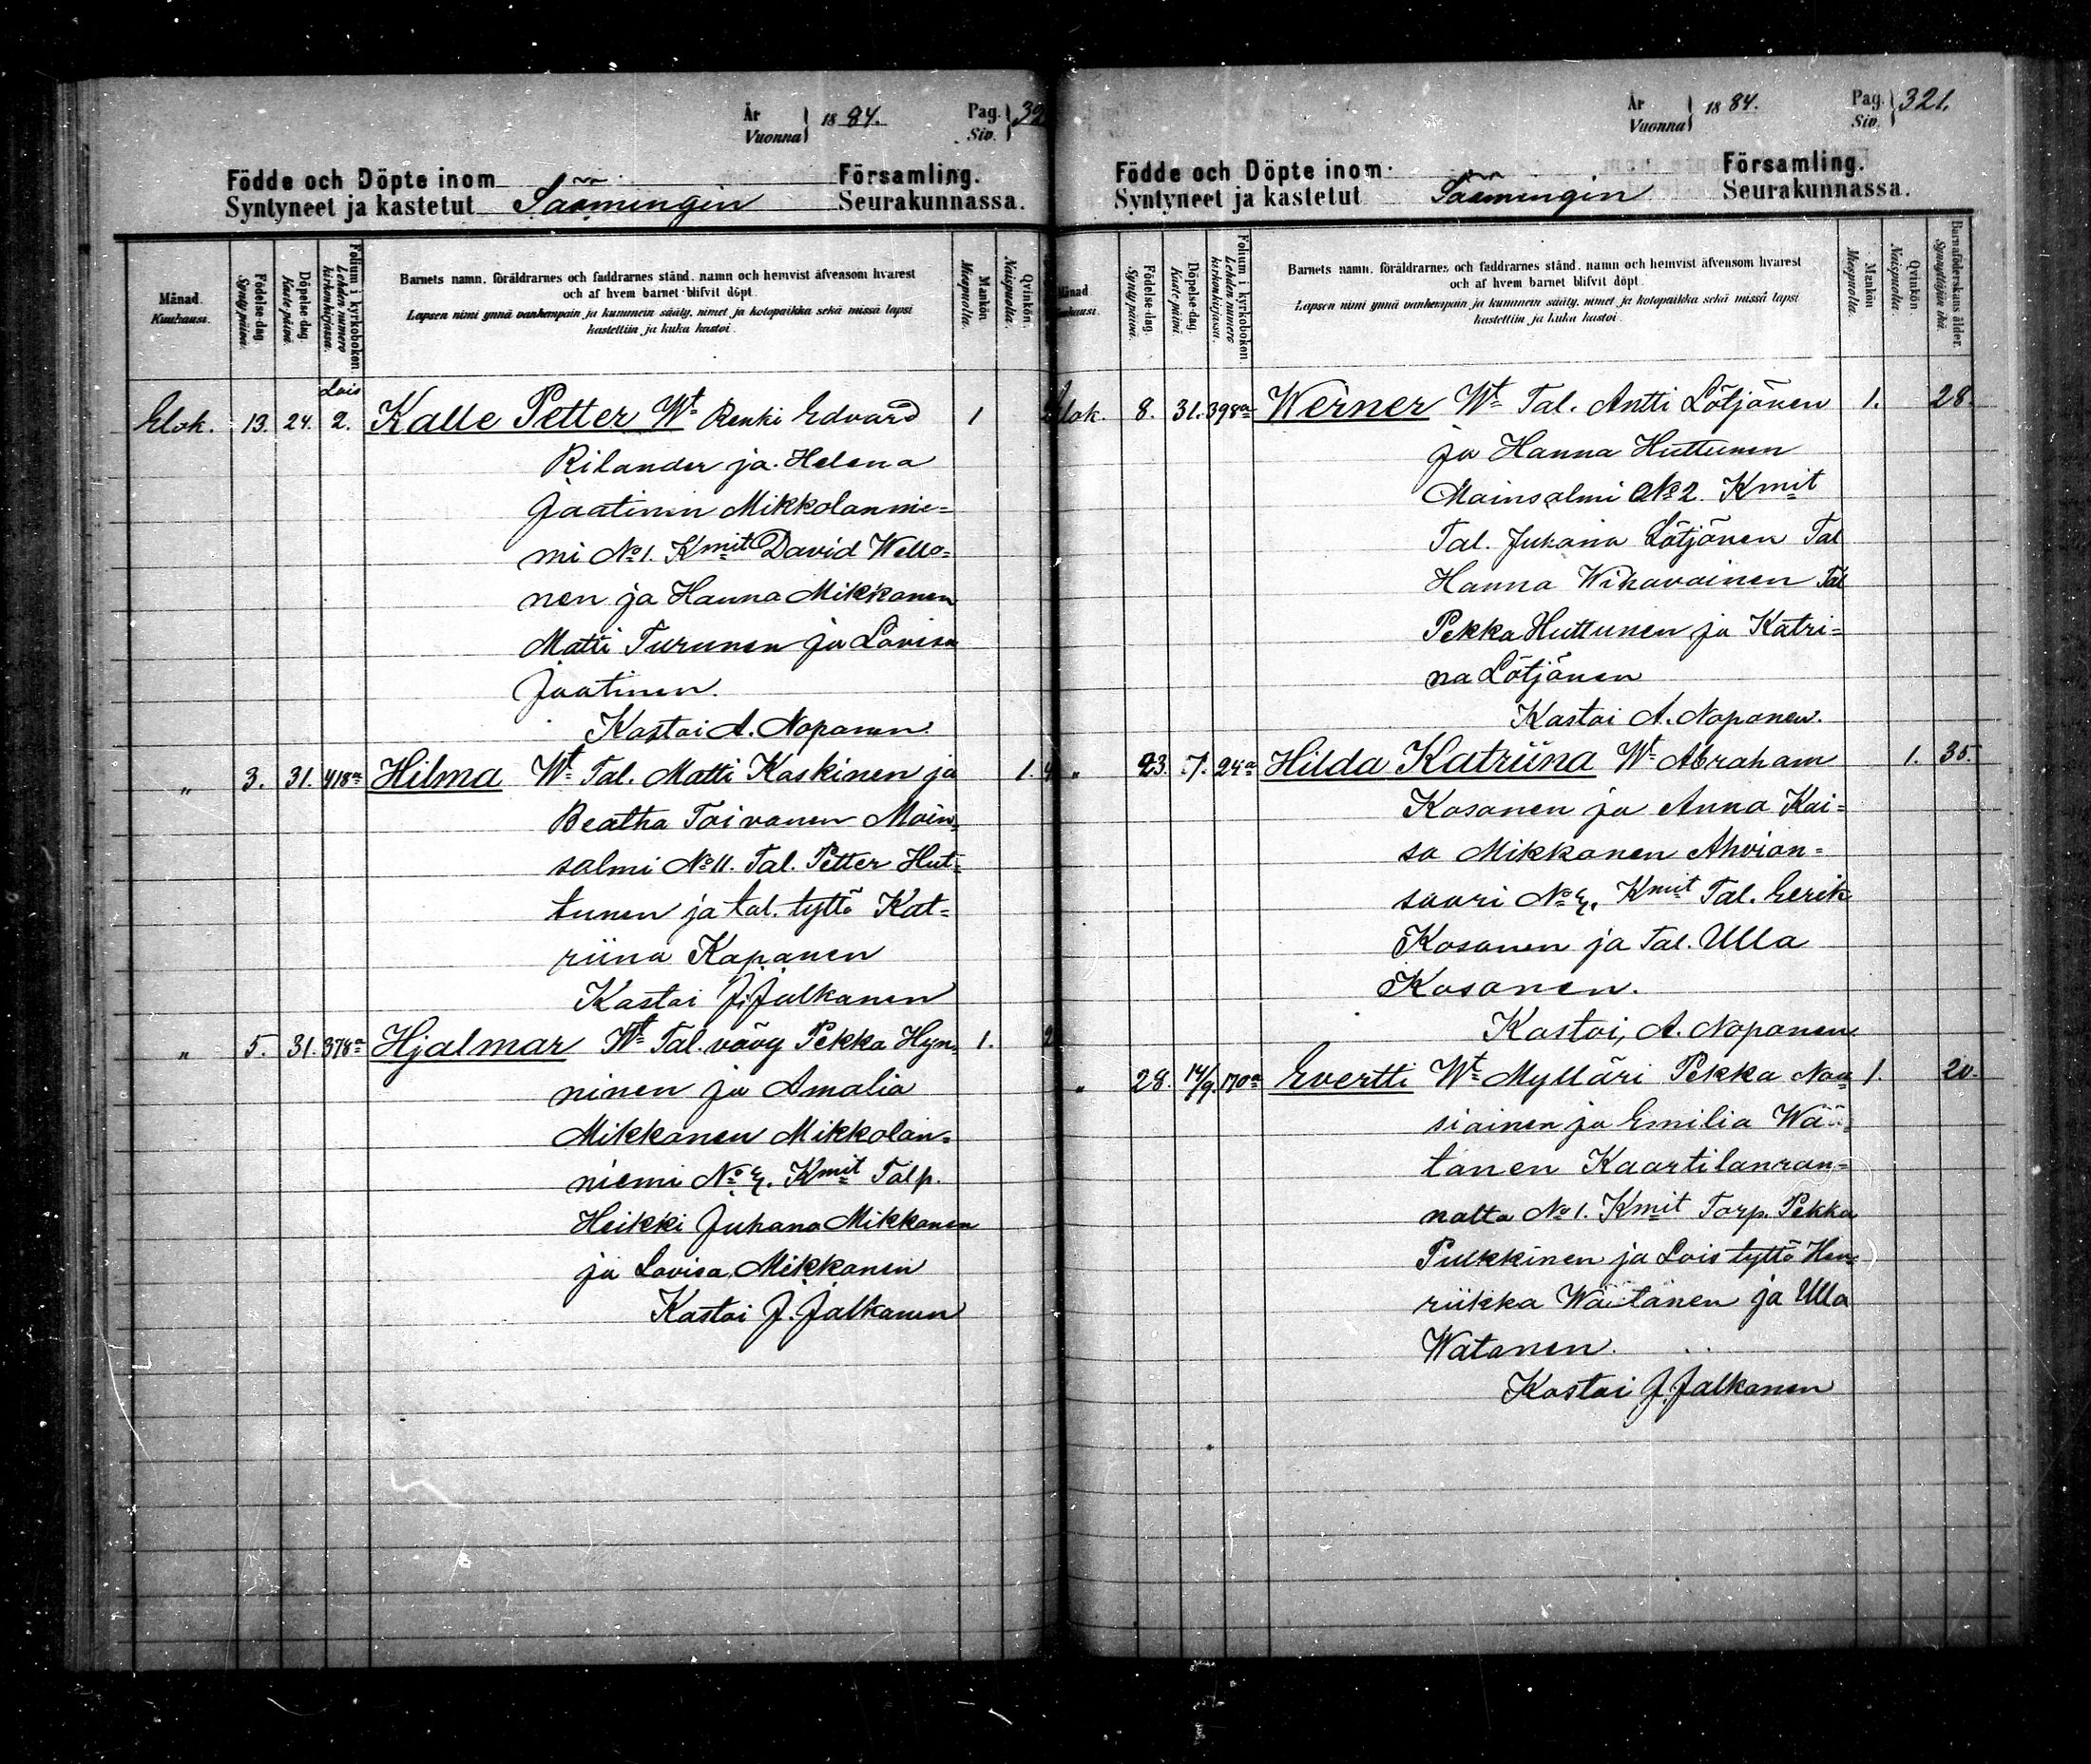 År
Vuonna 1884.
Pag.
Siv. 32
Födde och Döpte inom Församling.
Syntyneet ja kastetut Säämingin Seurakunnassa.
Månad. Kuukausi.
Födelse dag. Synty päivä.
Döpelse dag. Kaste päivä.
Folium i kyrkoboken. Lehden numero kirkonkirjassa.
Barnets namn, föräldrarnes och faddrarnes stånd, namn och hemvist äfvensom hvarest
och af hvem barnet blifvit döpt.
Lapsen nimi ynnä vanhempain ja kummein sääty, nimet ja kotopaikka sekä missä lapsi
kastettiin ja kuka kastoi.
Mankön. Miespuolia.
Qvinkön. Naispuolia.
Lois
Elok. 13. 24. 2. Kalle Petter Wt Renki Edvard 1
Rilander ja Helena
Jaatinen Mikkolannie=
mi No 1. Kmit David Wello=
nen ja Hanna Mikkonen
Matti Turunen ja Lovisa
Jaatinen.
Kastoi A. Noponen.
" 3. 31. 418a Hilma Wt Tal. Matti Kaskinen ja 1. 4
Beatha Toivanen Moin=
salmi No 11. Tal. Petter Hut=
tunen ja tal. tyttö Kat=
riina Kapanen
Kastoi J. Jalkanen
" 5. 31. 378a Hjalmar Wt Tal. vävy Pekka Hyn= 1. 2
ninen ja Amalia
Mikkonen Mikkolan=
niemi No 4. Kmit Talp.
Heikki Juhana Mikkonen
ja Lovisa Mikkonen
Kastoi J. Jalkanen
År
Vuonna 1884.
Pag.
Siv. 321.
Födde och Döpte inom Församling.
Syntyneet ja kastetut Säämingin Seurakunnassa.
Månad. Kuukausi.
Födelse dag. Synty päivä.
Döpelse dag. Kaste päivä.
Folium i kyrkoboken. Lehden numero kirkonkirjassa.
Barnets namn, föräldrarnes och faddrarnes stånd, namn och hemvist äfvensom hvarest
och af hvem barnet blifvit döpt.
Lapsen nimi ynnä vanhempain ja kummein sääty, nimet ja kotopaikka sekä missä lapsi
kastettiin ja kuka kastoi.
Mankön. Miespuolia.
Qvinkön. Naispuolia.
Barnaföderskans ålder. Synnyttäjän ikä.
Elok. 8. 31. 398a Werner Wt Tal. Antti Lötjönen 1. 28.
ja Hanna Huttunen
Moinsalmi No 2. Kmit
Tal. Juhana Lötjönen Tal
Hanna Wihavainen Tal
Pekka Huttunen ja Katri=
na Lötjönen
Kastoi A. Noponen.
" 23. 7. 24a Hilda Katriina Wt Abraham 1. 35.
Kosonen ja Anna Kai=
sa Mikkonen Ahvion=
saari No 4. Kmit Tal. Eerik
Kosonen ja Tal. Ulla
Kosonen.
Kastoi, A. Noponen.
" 28. 14/9. 170a Evertti Wt Mylläri Pekka Nou= 1. 20.
siainen ja Emilia Wää=
tänen Kaartilanran=
nalta No 1. Kmit Torp. Pekka
Pulkkinen ja Lois tyttö Hen=
riikka Wäätänen ja Ulla
Watanen.
Kastoi J. Jalkanen